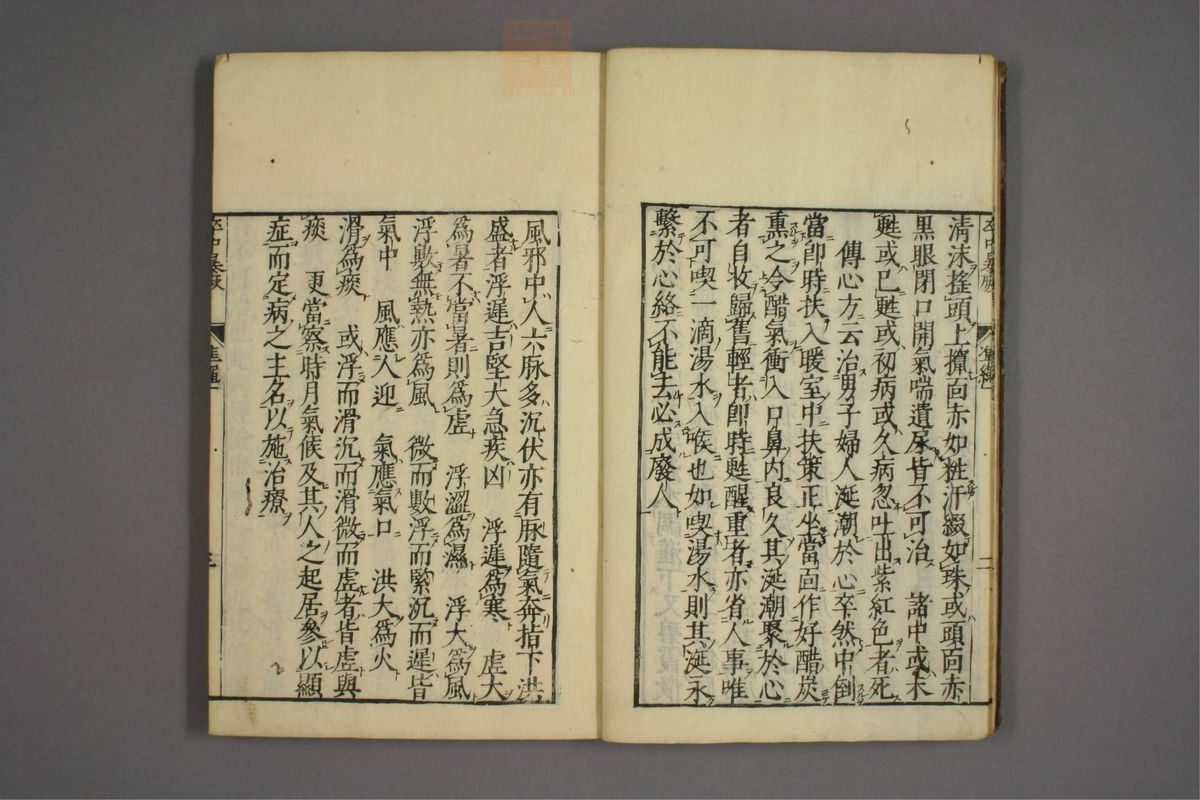 清沫搖頭上攛面赤如粧汗綴如珠或頭面赤
黑眼閉口開氣喘遺尿皆不可治 諸中或未
甦或已甦或初病或久病忽吐出紫紅色者死
傳心方云治男子婦人涎潮於心卒然中倒
當卽時扶入暖室中扶策正坐當面作好醋炭
熏之令醋氣衝入口鼻內良久其涎潮聚於心
者自收歸舊輕者卽時甦醒重者亦省人事唯
不可喫一滴湯水入喉也如喫湯水則其涎永
繫於心絡不能去必成廢人
風邪中人六脉多沉伏亦有脉隨氣奔指下洪
盛者浮遲吉堅大急疾凶 浮遲爲寒 虛大
爲暑不當暑則爲虛 浮澀爲濕 浮大爲風
浮數無熱亦爲風 微而數浮而緊沉而遲皆
氣中 風應人迎 氣應氣口 洪大爲火
滑爲痰 或浮而滑沉而滑微而虛者皆虛與
痰 更當察時月氣候及其人之起居參以顯
症而定病之主名以施治療